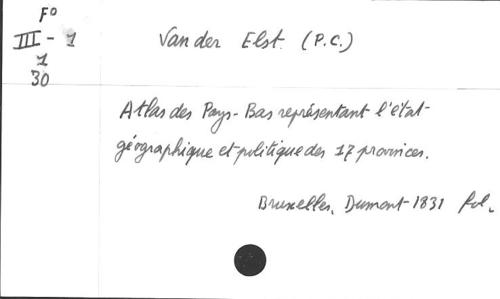 F°
III - 1
1
30
Van der Elst. (P.C.)
Atlas des Pays-Bas représentant l'état
géographique et politique des 17 provinces.
Bruxelles, Dumont 1831 fol.